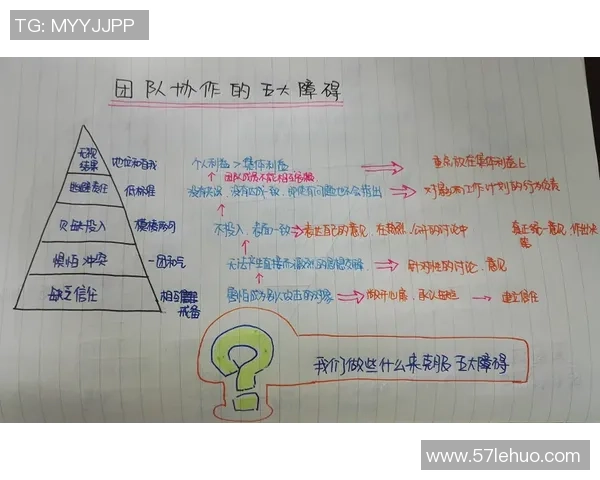 TG: MYYJJPP
团队协作的五大障碍
无视结果 地位和自我 个人利益 > 集体利益 重点放在集体利益上
团队成员不能相互
逃避责任 低标准 没有共识、没有达成一致，即使有问题也不会指出
欠缺投入 模棱两可 不投入，表面一致 表达自己的意见，在 公开的讨论中 真正统一意见，作出决策
惧怕冲突 一团和气 无法产生直接而激烈的思想交锋 针对性的讨论、意见
缺乏信任 相互戒备 害怕成为别人攻击的对象 敞开心扉、承认 建立信任
?
我们做些什么来克服五大障碍
www.57lehuo.com